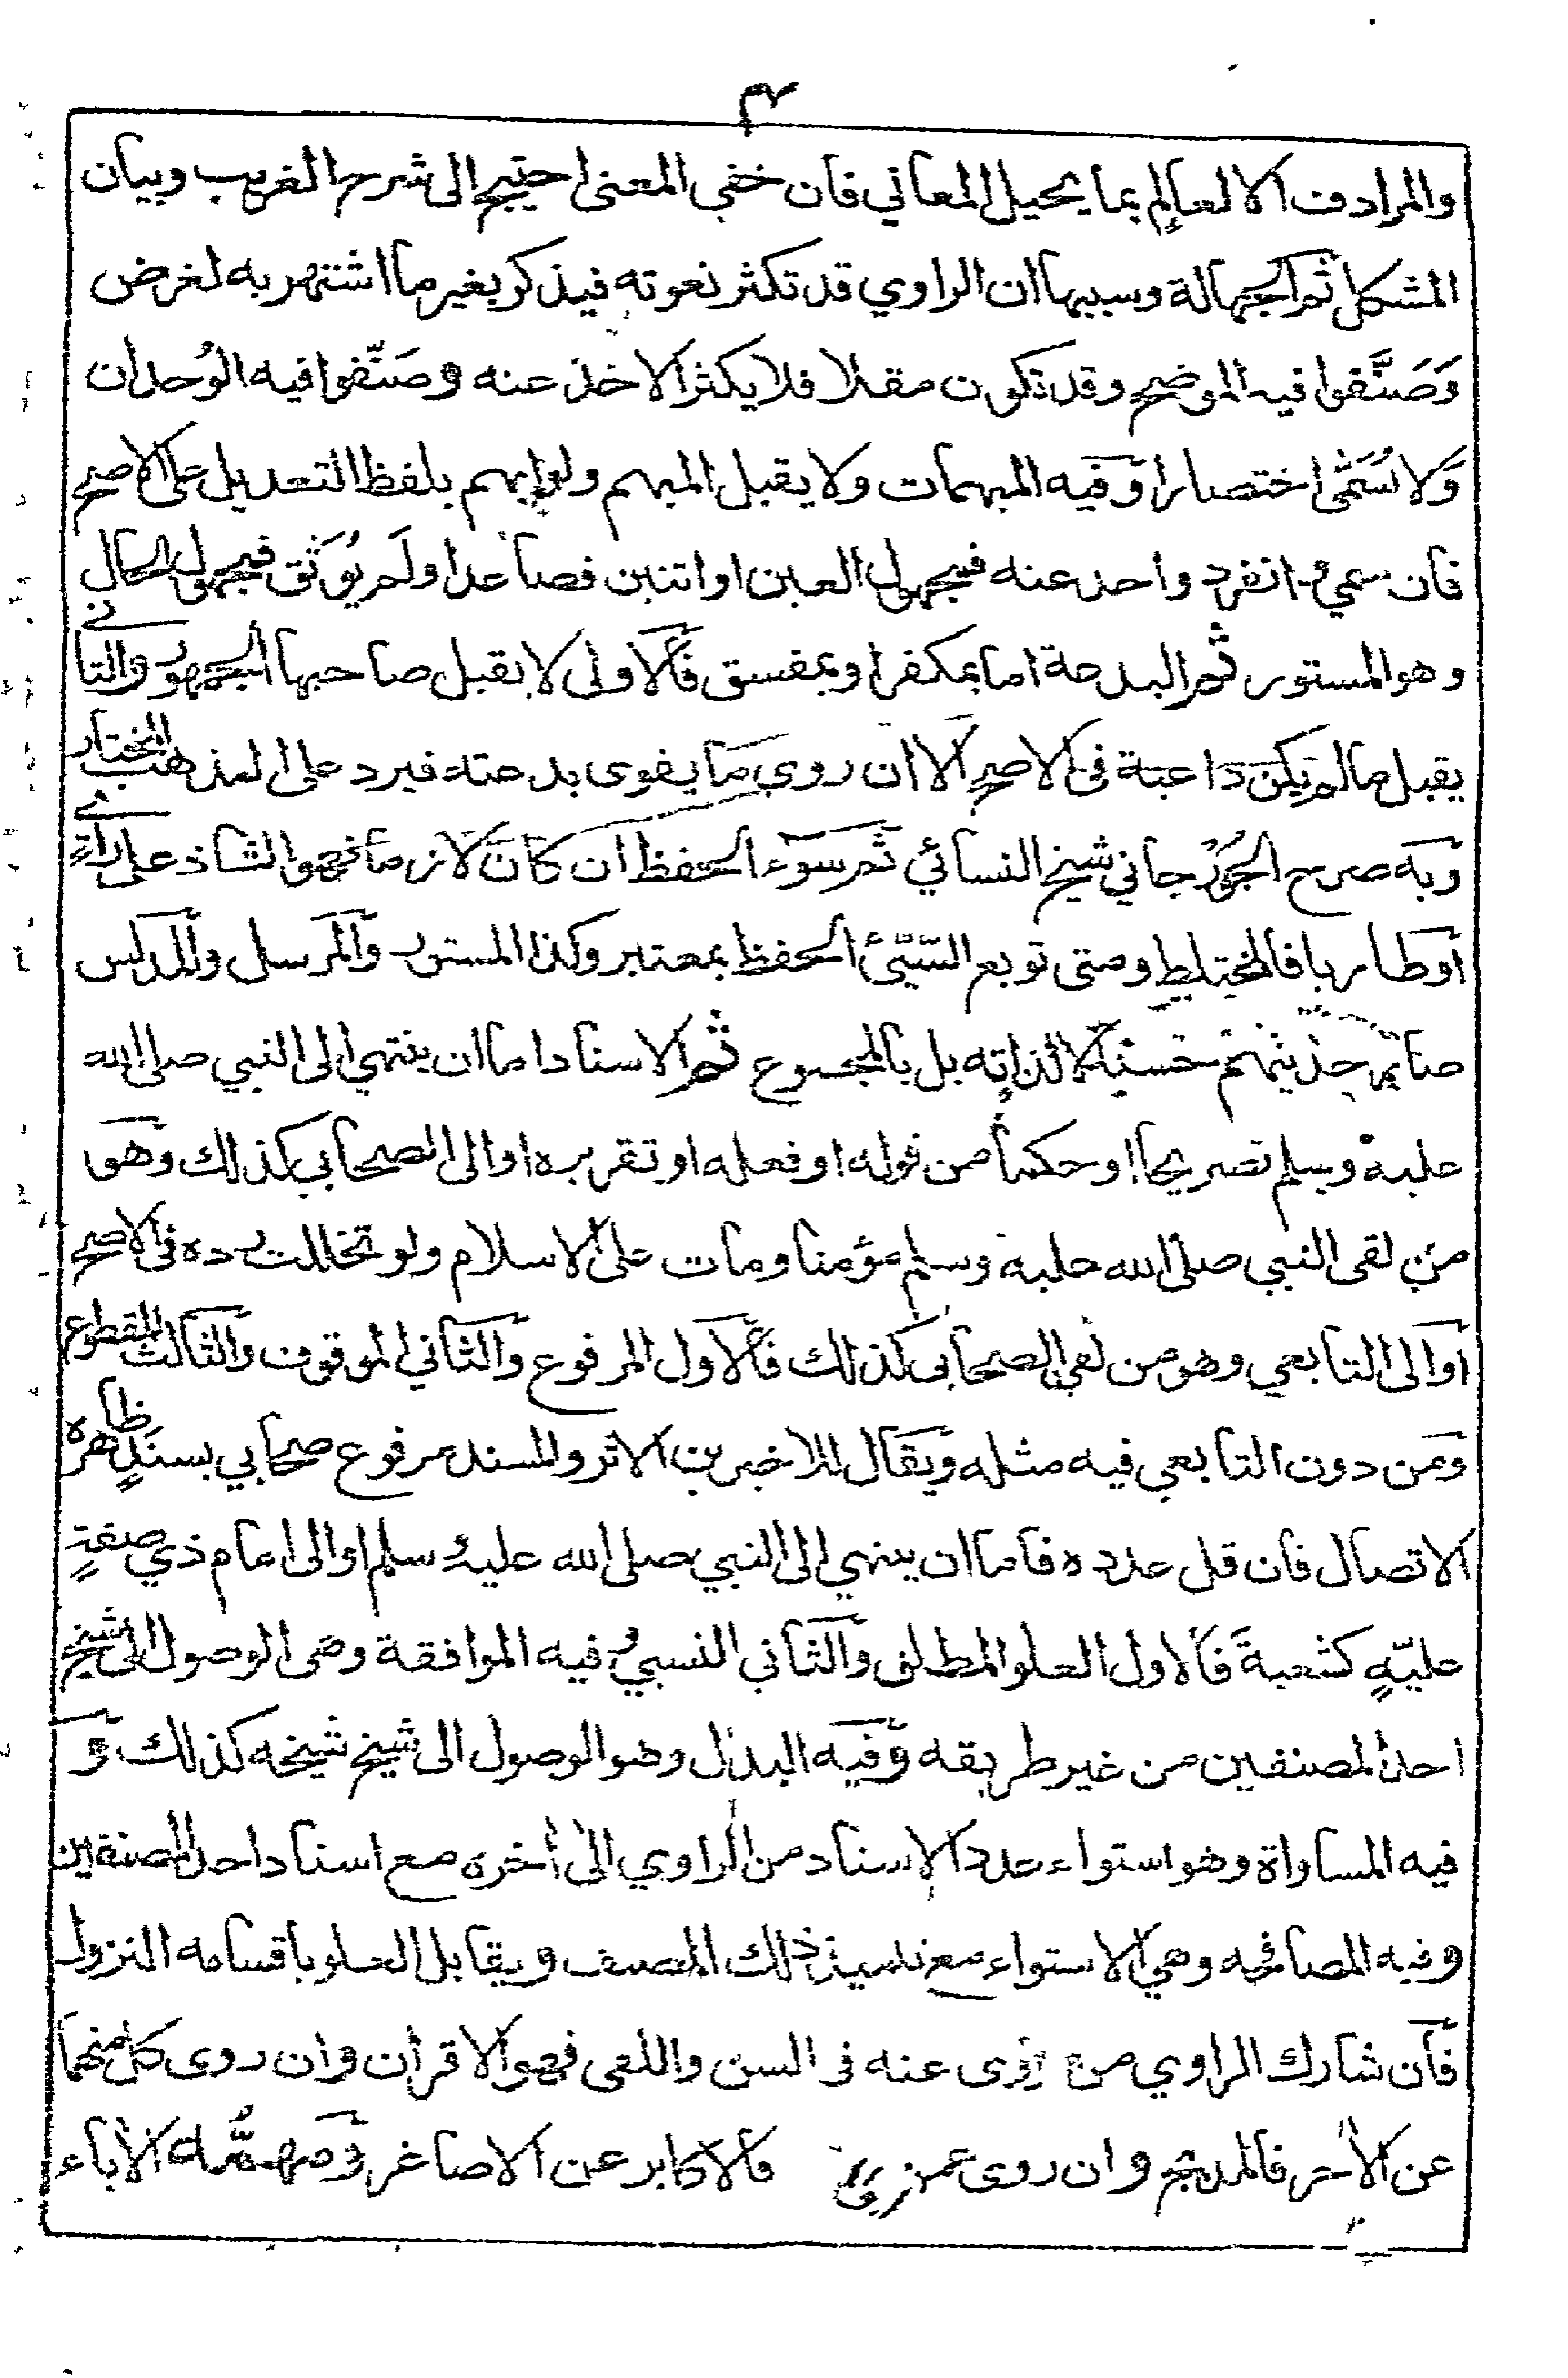 ٣
والمرادف الا لعالم بما يحيل المعاني فان خفي المعنى احتيج الى شرح الغريب وبيان
المشكل ثم الجهالة وسببها ان الراوي قد تكثر نعوته فيذكر بغير ما اشتهر به لغرض
وَصَنَّفوا فيه الموضح وقد تكون مقلا فلا يكثر الاخذ عنه وصَنّفوا فيه الوُحدان
وَلا يُسَمّى اختصارا وفيه المبهمات ولا يقبل المبهم ولو ابهم بلفظ التعديل على الاصح
فان سمي وانفرد واحد عنه فمجهول العين او اثنين فصاعدا ولم يُوَثَق فمجهول الحال
وهو المستور ثم البدعة اما بمكفر او بمفسق فالاول لا يقبل صاحبها الجمهور والثاني
يقبل ما لم يكن داعية في الاصح الا ان روي ما يقوى بدعته فيرد على المذهب المختار
وبه صرح الجُوزجاني شيخ النسائي ثم سوء الحفظ ان كان لازما فهو الشاذ على راي
او طاريا فالمختلط ومتى توبع السّيّئ الحفظ بمعتبر وكذا المستور والمرسل والمدلس
صار حديثهم حسنا لا لذاته بل بالمجموع ثم الاسناد اما ان ينتهي الى النبي صلى الله
عليه وسلم تصريحا او حكما من قوله او فعله او تقريره او الى الصحابي كذلك وهو
من لقى النبي صلى الله عليه وسلم مؤمنا ومات على الاسلام ولو تخللت رده في الاصح
او الى التابعي وهو من لقي الصحابي كذلك فالاول المرفوع والثاني الموقوف والثالث المقطوع
ومن دون التابعي فيه مثله ويقال للاخيرين الاثر والمسند مرفوع صحابي بسندٍ ظاهره
الاتصال فان قل عدده فاما ان ينهي الى النبي صلى الله عليه وسلم او الى امام ذي صفةٍ
عليّةٍ كشعبةَ فالاول العلو المطلق والثاني النسبيُ فيه الموافقة وهى الوصول الى شيخ
احد المصنفين من غير طريقه وفيه البدل وهو الوصول الى شيخ شيخه كذلك و
فيه المساواة وهو استواء عدد الاسناد من الراوي الى أخره مع اسناد احد المصنفين
وفيه المصافحه وهي الاستواء مع تلميذ ذلك المصنف ويقابل العلو باقسامه النزول
فان شارك الراوي من روى عنه فى السن واللقى فهو الاقران وان روى كل منهما
عن الأخر فالمدبج وان روى عمن فالاكابر عن الاصاغر ومنه الأباء